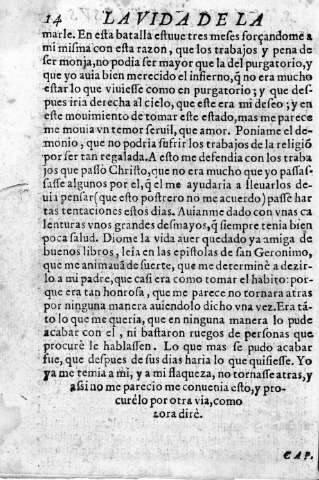 14 LA VIDA DE LA
marle. En esta batalla estuue tres meses forçandome a
mi misma con esta razon, que los trabajos y pena de
ser monja, no podia ser mayor que la del purgatorio, y
que yo auia bien merecido el infierno, q̃ no era mucho
estar lo que viuiesse como en purgatorio; y que des-
pues iria derecha al cielo, que este era mi deseo; y en
este mouimiento de tomar este estado, mas me parece
me mouia vn temor seruil, que amor. Poniame el de-
monio, que no podria sufrir los trabajos de la religiõ
por ser tan regalada. A esto me defendia con los traba
jos que passò Christo, que no era mucho que yo passas-
sasse algunos por el, q̃ el me ayudaria a lleuarlos de-
uia pensar (que esto postrero no me acuerdo) passè har
tas tentaciones estos dias. Auianme dado con vnas ca
lenturas vnos grandes desmayos, q̃ siempre tenia bien
poca salud. Diome la vida auer quedado ya amiga de
buenos libros, leia en las epistolas de san Geronimo,
que me animauã de suerte, que me determinè a dezir-
lo a mi padre, que casi era como tomar el habito: por-
que era tan honrosa, que me parece no tornara atras
por ninguna manera auiendolo dicho vna vez. Era tã-
to lo que me queria, que en ninguna manera lo pude
acabar con el, ni bastaron ruegos de personas que
procurè le hablassen. Lo que mas se pudo acabar
fue, que despues de sus dias haria lo que quisiesse. Yo
ya me temia a mi, y a mi flaqueza, no tornasse atras, y
assi no me parecio me conuenia esto, y pro-
curélo por otra via, como
aora dirè.
CAP.